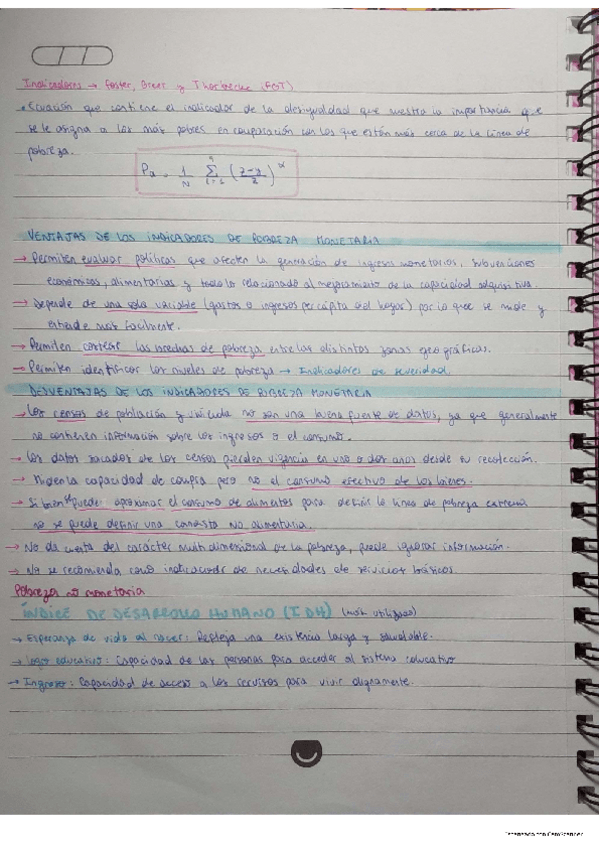 Indicadores → Foster, Greer y Thorbecke (FGT)
• Ecuación que contiene el indicador de la desigualdad que muestra la importancia que
se le asigna a los más pobres en comparación con los que están más cerca de la línea de
pobreza.
Pα = 1/N Σ (z-y/z)^α
VENTAJAS DE LOS INDICADORES DE POBREZA MONETARIA
→ Permiten evaluar políticas que afecten la generación de ingresos monetarios, subvenciones
económicas, alimentarias y todo lo relacionado al mejoramiento de la capacidad adquisitiva.
→ Depende de una sola variable (gastos o ingresos per cápita del hogar) por lo que se mide y
entiende más facilmente.
→ Permiten conocer las brechas de pobreza entre las distintas zonas geográficas.
→ Permiten identificar los niveles de pobreza → Indicadores de severidad
DESVENTAJAS DE LOS INDICADORES DE POBREZA MONETARIA
→ Los censos de población y vivienda no son una buena fuente de datos, ya que generalmente
no contienen información sobre los ingresos o el consumo.
→ Los datos sacados de los censos pierden vigencia en uno o dos años desde su recolección.
→ Miden la capacidad de compra pero no el consumo efectivo de los bienes.
→ Si bien se puede aproximar el consumo de alimentos para definir la línea de pobreza extrema
no se puede definir una canasta no alimentaria.
→ No da cuenta del carácter multidimensional de la pobreza, puede ignorar información.
→ No se recomienda como indicador de necesidades de servicios básicos.
Pobreza no monetaria
ÍNDICE DE DESARROLLO HUMANO (IDH) (más utilizado)
→ Esperanza de vida al nacer: Refleja una existencia larga y saludable.
→ Logro educativo: Capacidad de las personas para acceder al sistema educativo
→ Ingreso: Capacidad de acceso a los recursos para vivir dignamente.